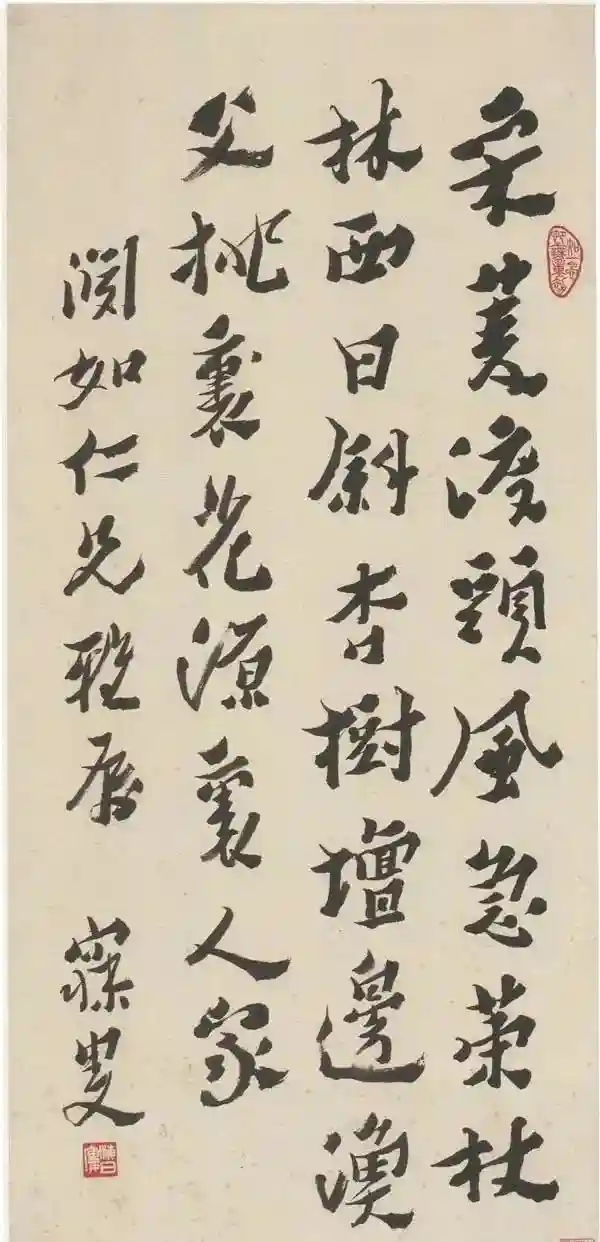 采菱渡頭風急策杖
林西日斜杏樹壇邊漁
父桃裏花源裏人家
淵如仁兄雅屬 寐叟